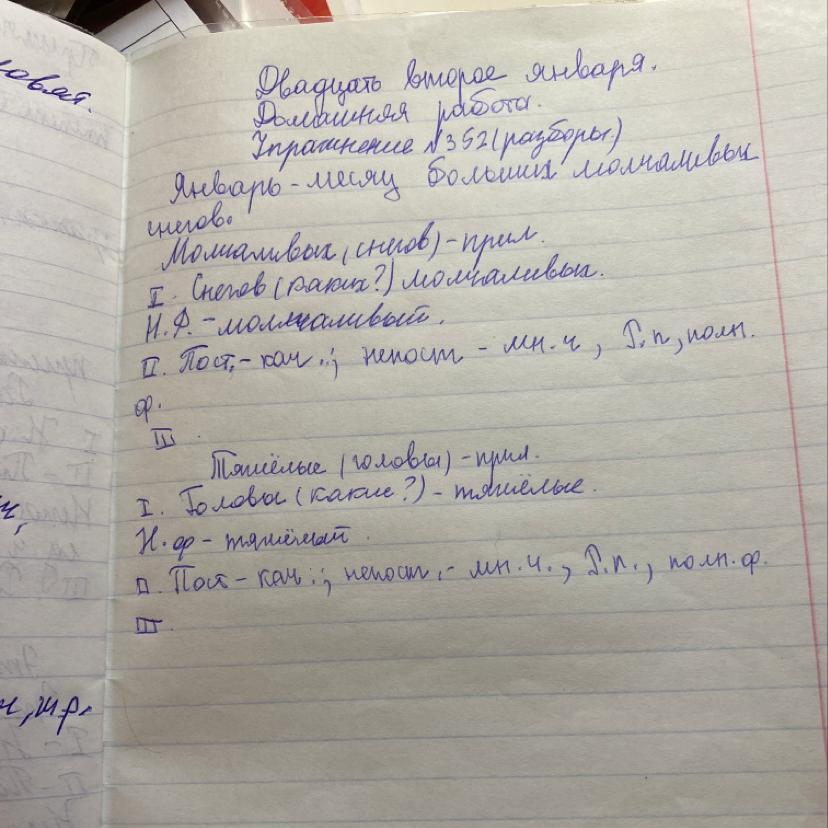 овая.
Двадцать второе января.
Домашняя работа.
Упражнение №352 (разборы.)
Январь - месяц больших молчаливых
снегов.
Молчаливых (снегов) - прил.
I. Снегов (каких?) молчаливых.
Н.Ф. - молчаливый.
II. Пост. - кач.; непост - мн.ч, Р.п, полн.
ф.
III.
Тяжёлые (головы) - прил.
I. Головы (какие?) - тяжёлые.
Н.ф - тяжёлый.
II. Пост - кач.; непост. - мн.ч., Р.п., полн.ф.
III.
ч, ж.р.